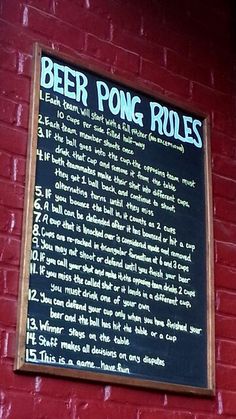 BEER PONG RULES
1. Each team will start with a full pitcher (no exceptions)
10 cups per side filled half-way
2. Each team member shoots once
3. If the ball goes into the cup, the opposing team must
drink that cup and remove it from the table
4. If both teammates make their shot into different cups,
they get 1 ball back, and continue to shoot
alternating turns until they miss
5. If you bounce the ball in, it counts as 2 cups
6. A ball can be defended after it has bounced or hit a cup
7. A cup that is knocked over is considered made and removed
8. Cups are re-racked in triangular formation at 6 and 3 cups
9. You may not shoot or defend until you finish your beer
10. If you call your shot and make it the opposing team drinks 2 cups
11. If you miss the called shot or it lands in a different cup,
you must drink one of your own
12. You can defend your cup only when you have finished your
beer and the ball has hit the table or a cup
13. Winner stays on the table
14. Staff makes all decisions on any disputes
15. This is a game... have fun